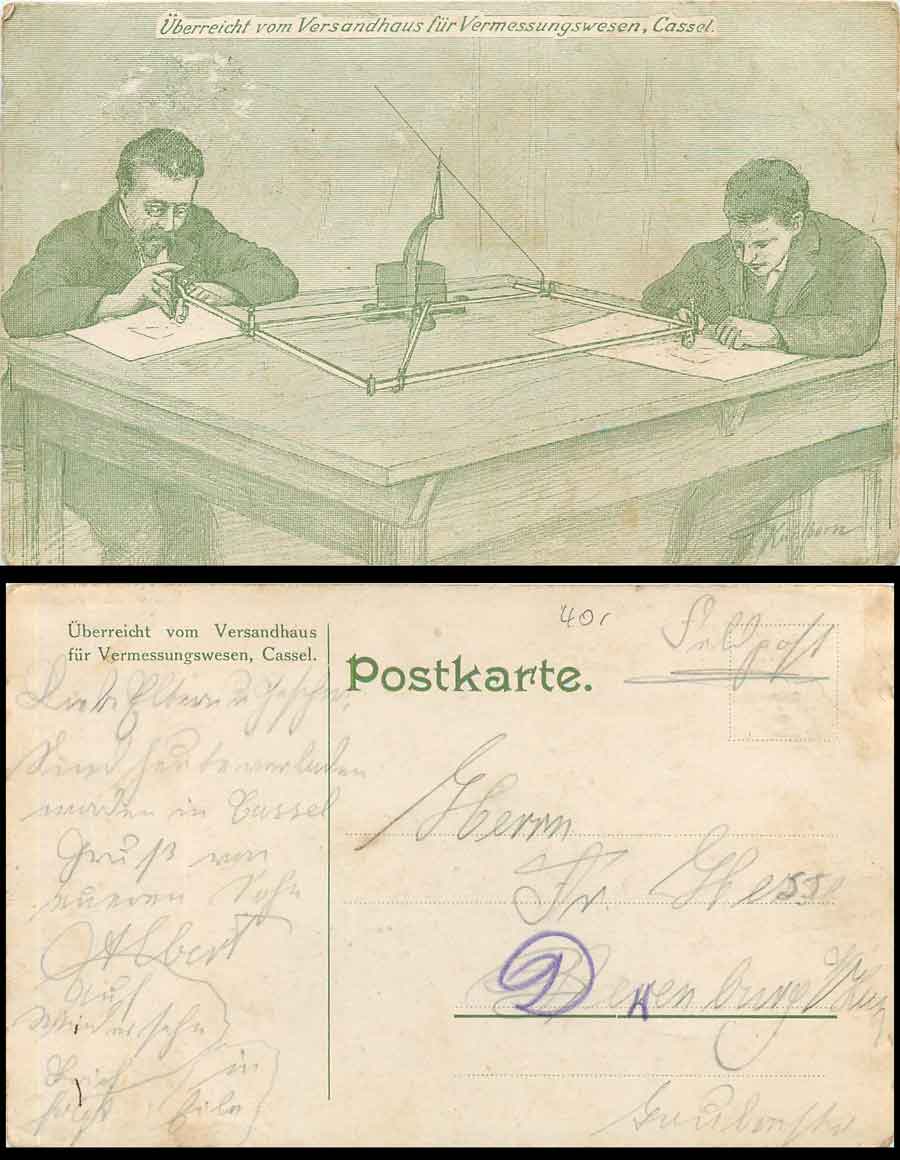 Überreicht vom Versandhaus für Vermessungswesen, Cassel.
Kuhlborn
Überreicht vom Versandhaus
für Vermessungswesen, Cassel.
Postkarte.
40,
Feldpost
Liebe Eltern u Geschw.
Sind heute verladen
worden in Cassel
Gruß von
eueren Sohn
Albert
Auf
Wiedersehn
Brief
folgt
in
Eile
Herrn
Fr. Hess